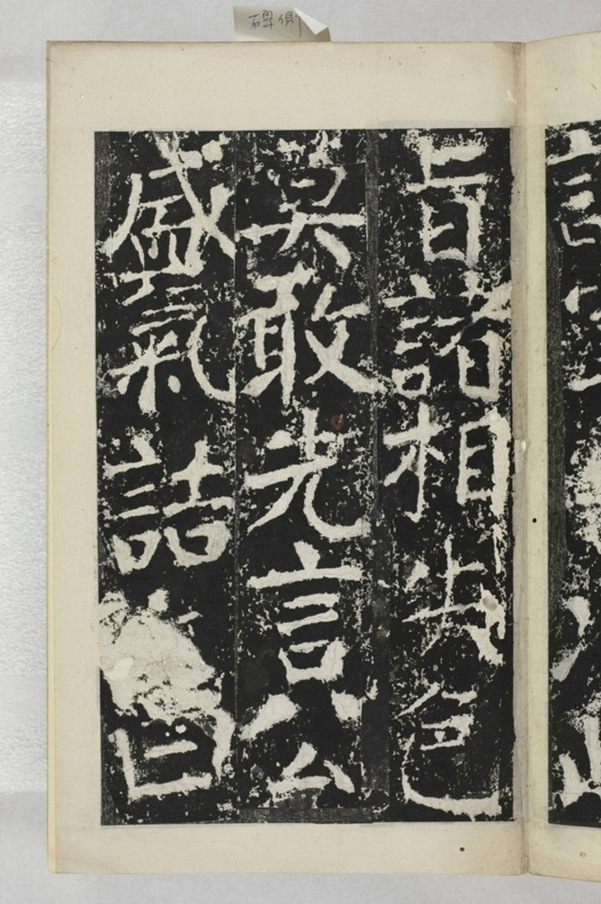 碑側
旨諸相失色
莫敢先言公
盛氣詰曰